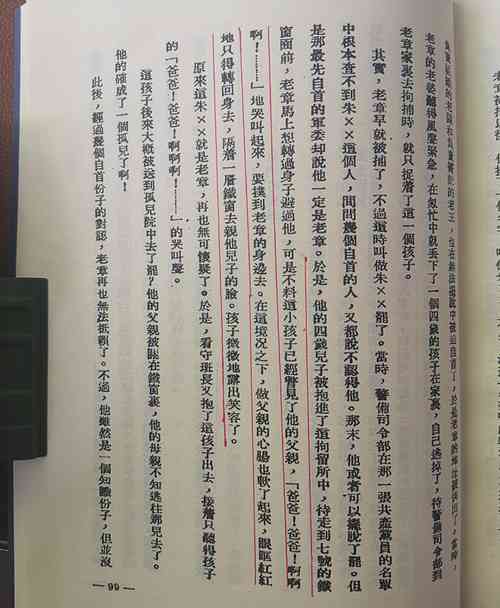 也在無法抵賴中被迫自首了，於是老章的
老章的老婆聽得風聲緊急，在匆忙中就丟下了一個四歲的孩子在家裏，自己逃掉了，待警備司令部到
老章家裏去拘捕時，就只捉着了這一個孩子。
其實，老章早就被捕了，不過這時叫做朱××罷了。當時，警備司令部在那一張共產黨員的名單
中根本查不到朱××這個人，問問幾個自首的人，又都說不認得他。那末，他或者可以擺脫了罷。但
是那最先自首的軍委却說他一定是老章。於是，他的四歲兒子被抱進了這拘留所中，待走到七號的鐵
窗面前，老章馬上想轉過身子避過他，可是不料這小孩子已經瞥見了他的父親，「爸爸！爸爸！啊啊
啊！……」地哭叫起來，要撲到老章的身邊去。在這境況之下，做父親的心腸也軟了起來，眼眶紅紅
地只得轉回身去，隔着一層鐵窗去親他兒子的臉。孩子微微地露出笑容了。
原來這朱××就是老章，再也無可懷疑了。於是，看守班長又抱了這孩子出去，接着只聽得孩子
的「爸爸！爸爸！啊啊！……」的哭叫聲。
這孩子後來大概被送到孤兒院中去了罷？他的父親被關在鐵窗裏，他的母親不知逃往那兒去了。
他的確成了一個孤兒了！
此後，經過幾個自首份子的對認，老章再也無法抵賴了。不過，他雖然是一個知識份子，但並沒
— 99 —